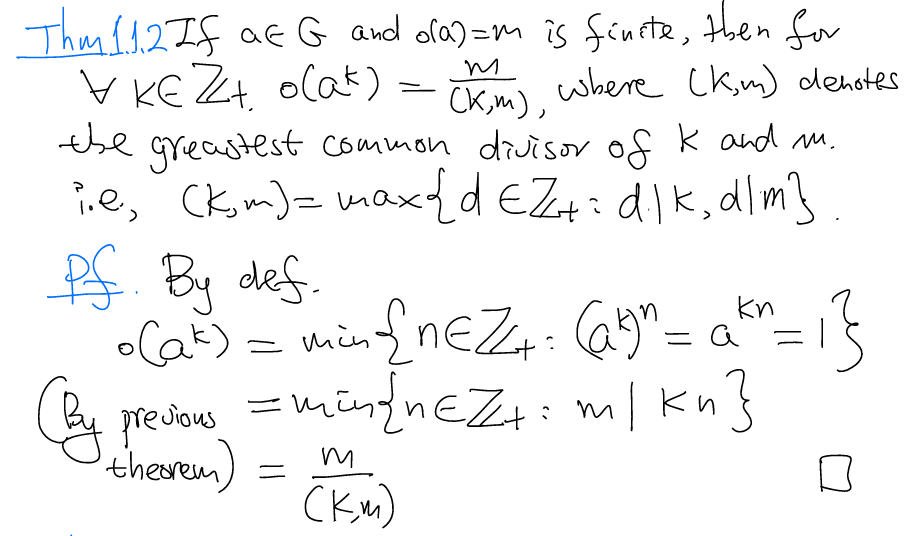 Thm 1.1.2 If a∈G and o(a)=m is finite, then for
∀ k∈ℤ₊, o(aᵏ) = m/(k,m), where (k,m) denotes
the greastest common divisor of k and m.
i.e, (k,m)=max{d∈ℤ₊: d|k, d|m}.
Pf. By def.
o(aᵏ) = min{n∈ℤ₊: (aᵏ)ⁿ = aᵏⁿ = 1}
(By previous = min{n∈ℤ₊: m | kn}
theorem) = m/(k,m) □